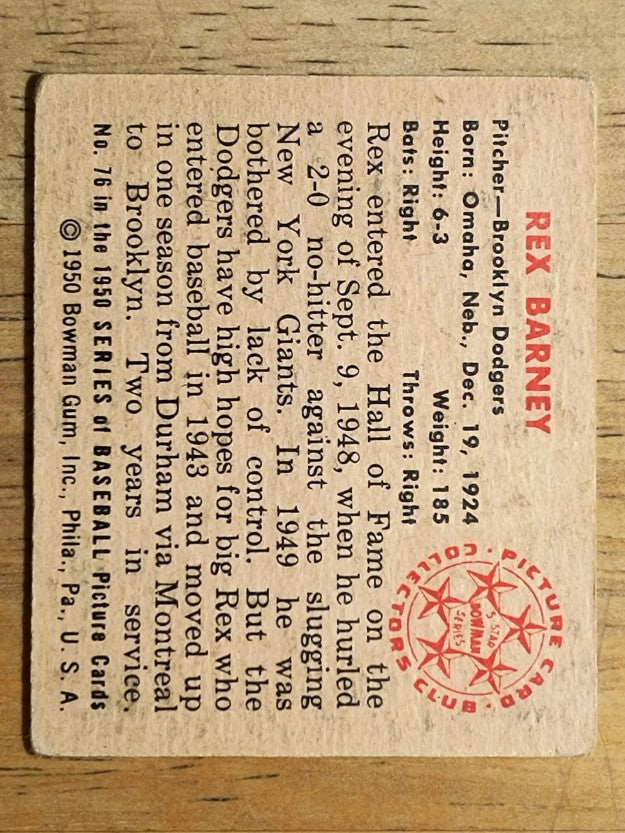 REX BARNEY
Pitcher—Brooklyn Dodgers
Born: Omaha, Neb., Dec. 19, 1924
Height: 6-3 Weight: 185
Bats: Right Throws: Right
Rex entered the Hall of Fame on the
evening of Sept. 9, 1948, when he hurled
a 2-0 no-hitter against the slugging
New York Giants. In 1949 he was
bothered by lack of control. But the
Dodgers have high hopes for big Rex who
entered baseball in 1943 and moved up
in one season from Durham via Montreal
to Brooklyn. Two years in service.
No. 76 in the 1950 SERIES of BASEBALL Picture Cards
© 1950 Bowman Gum, Inc., Phila., Pa., U. S. A.
PICTURE CARD COLLECTORS CLUB
5-STAR
BOWMAN
SERIES